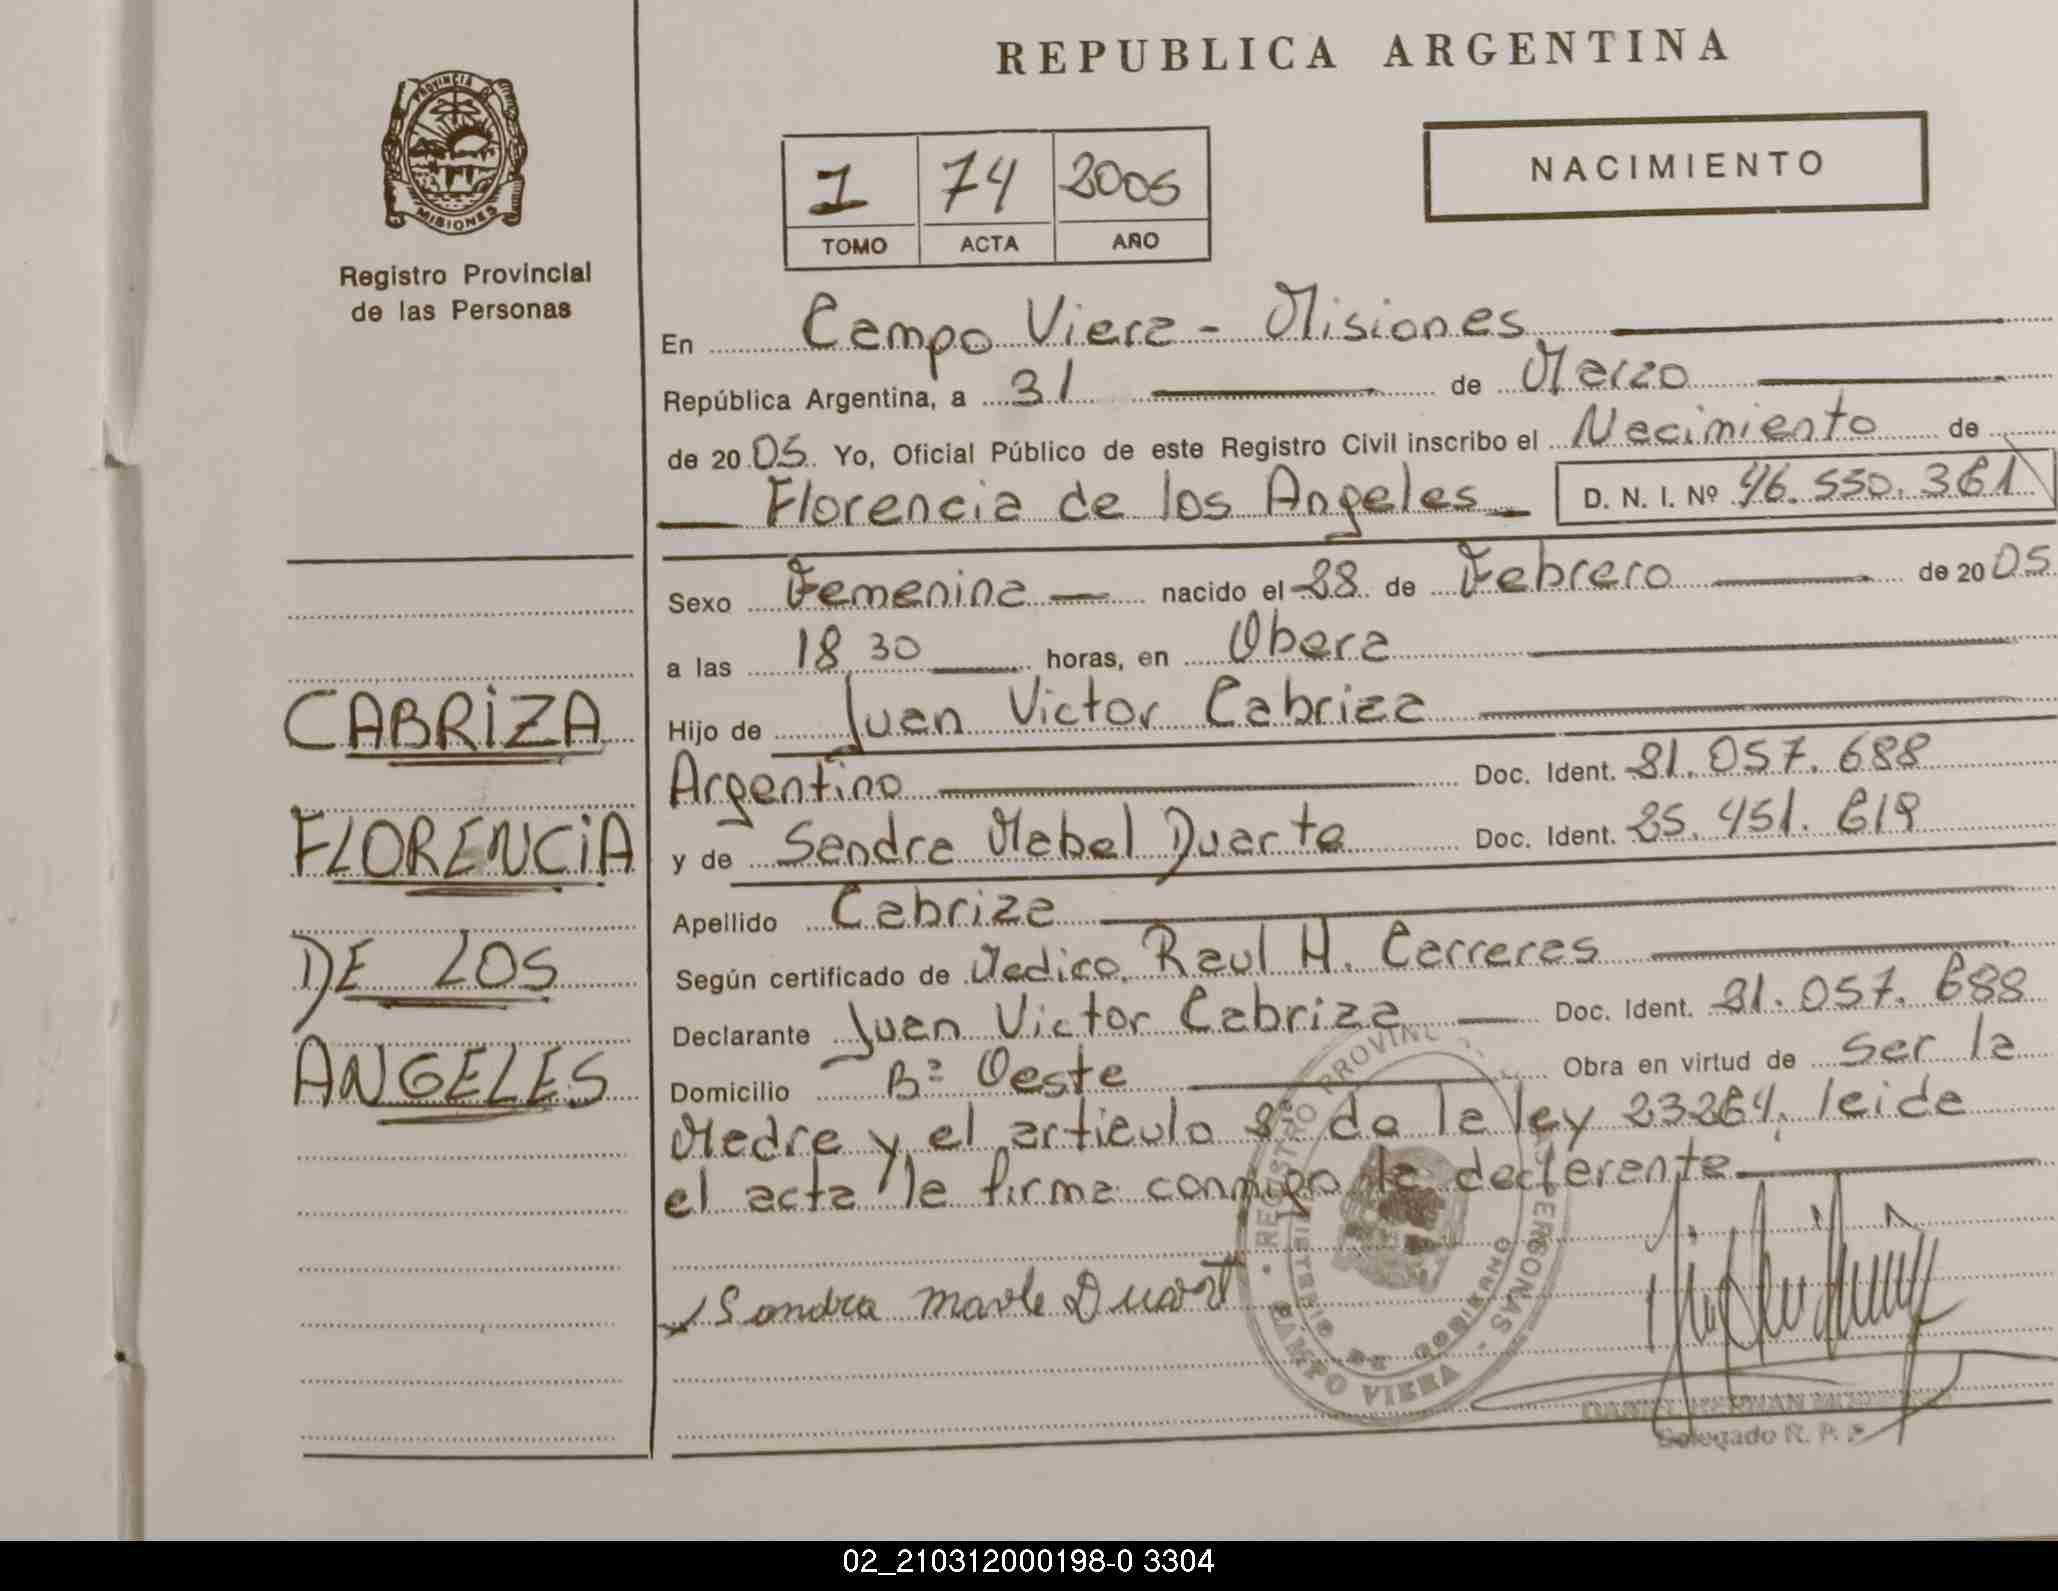 REPUBLICA ARGENTINA
PROVINCIA DE
MISIONES
Registro Provincial
de las Personas
1 74 2005
TOMO ACTA AÑO
NACIMIENTO
En Campo Viera - Misiones
República Argentina, a 31 de Marzo
de 2005 Yo, Oficial Público de este Registro Civil inscribo el Nacimiento de
Florencia de los Angeles D. N. I. Nº 46.530.361
Sexo Femenina nacido el 28 de Febrero de 2005
a las 18 30 horas, en Obera
Hijo de Juan Victor Cabriza
Argentino Doc. Ident. 21.057.688
y de Sandra Mabel Duarte Doc. Ident. 25.451.619
Apellido Cabriza
Según certificado de Medico. Raul H. Carreras
Declarante Juan Victor Cabriza Doc. Ident. 21.057.688
Domicilio Bº Oeste Obra en virtud de ser la
Madre y el articulo 2º de la ley 23264, leida
el acta la firma conmigo la declarante
CABRIZA
FLORENCIA
DE LOS
ANGELES
Sandra Duart
REGISTRO PROVINC PERSONAS
MINISTERIO DE GOBIERNO
CAMPO VIERA
Delegado R. P. P.
02_210312000198-0 3304